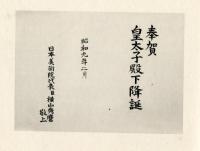 奉賀
皇太子殿下降誕
昭和九年二月
日本美術院代表 横山大觀
敬上